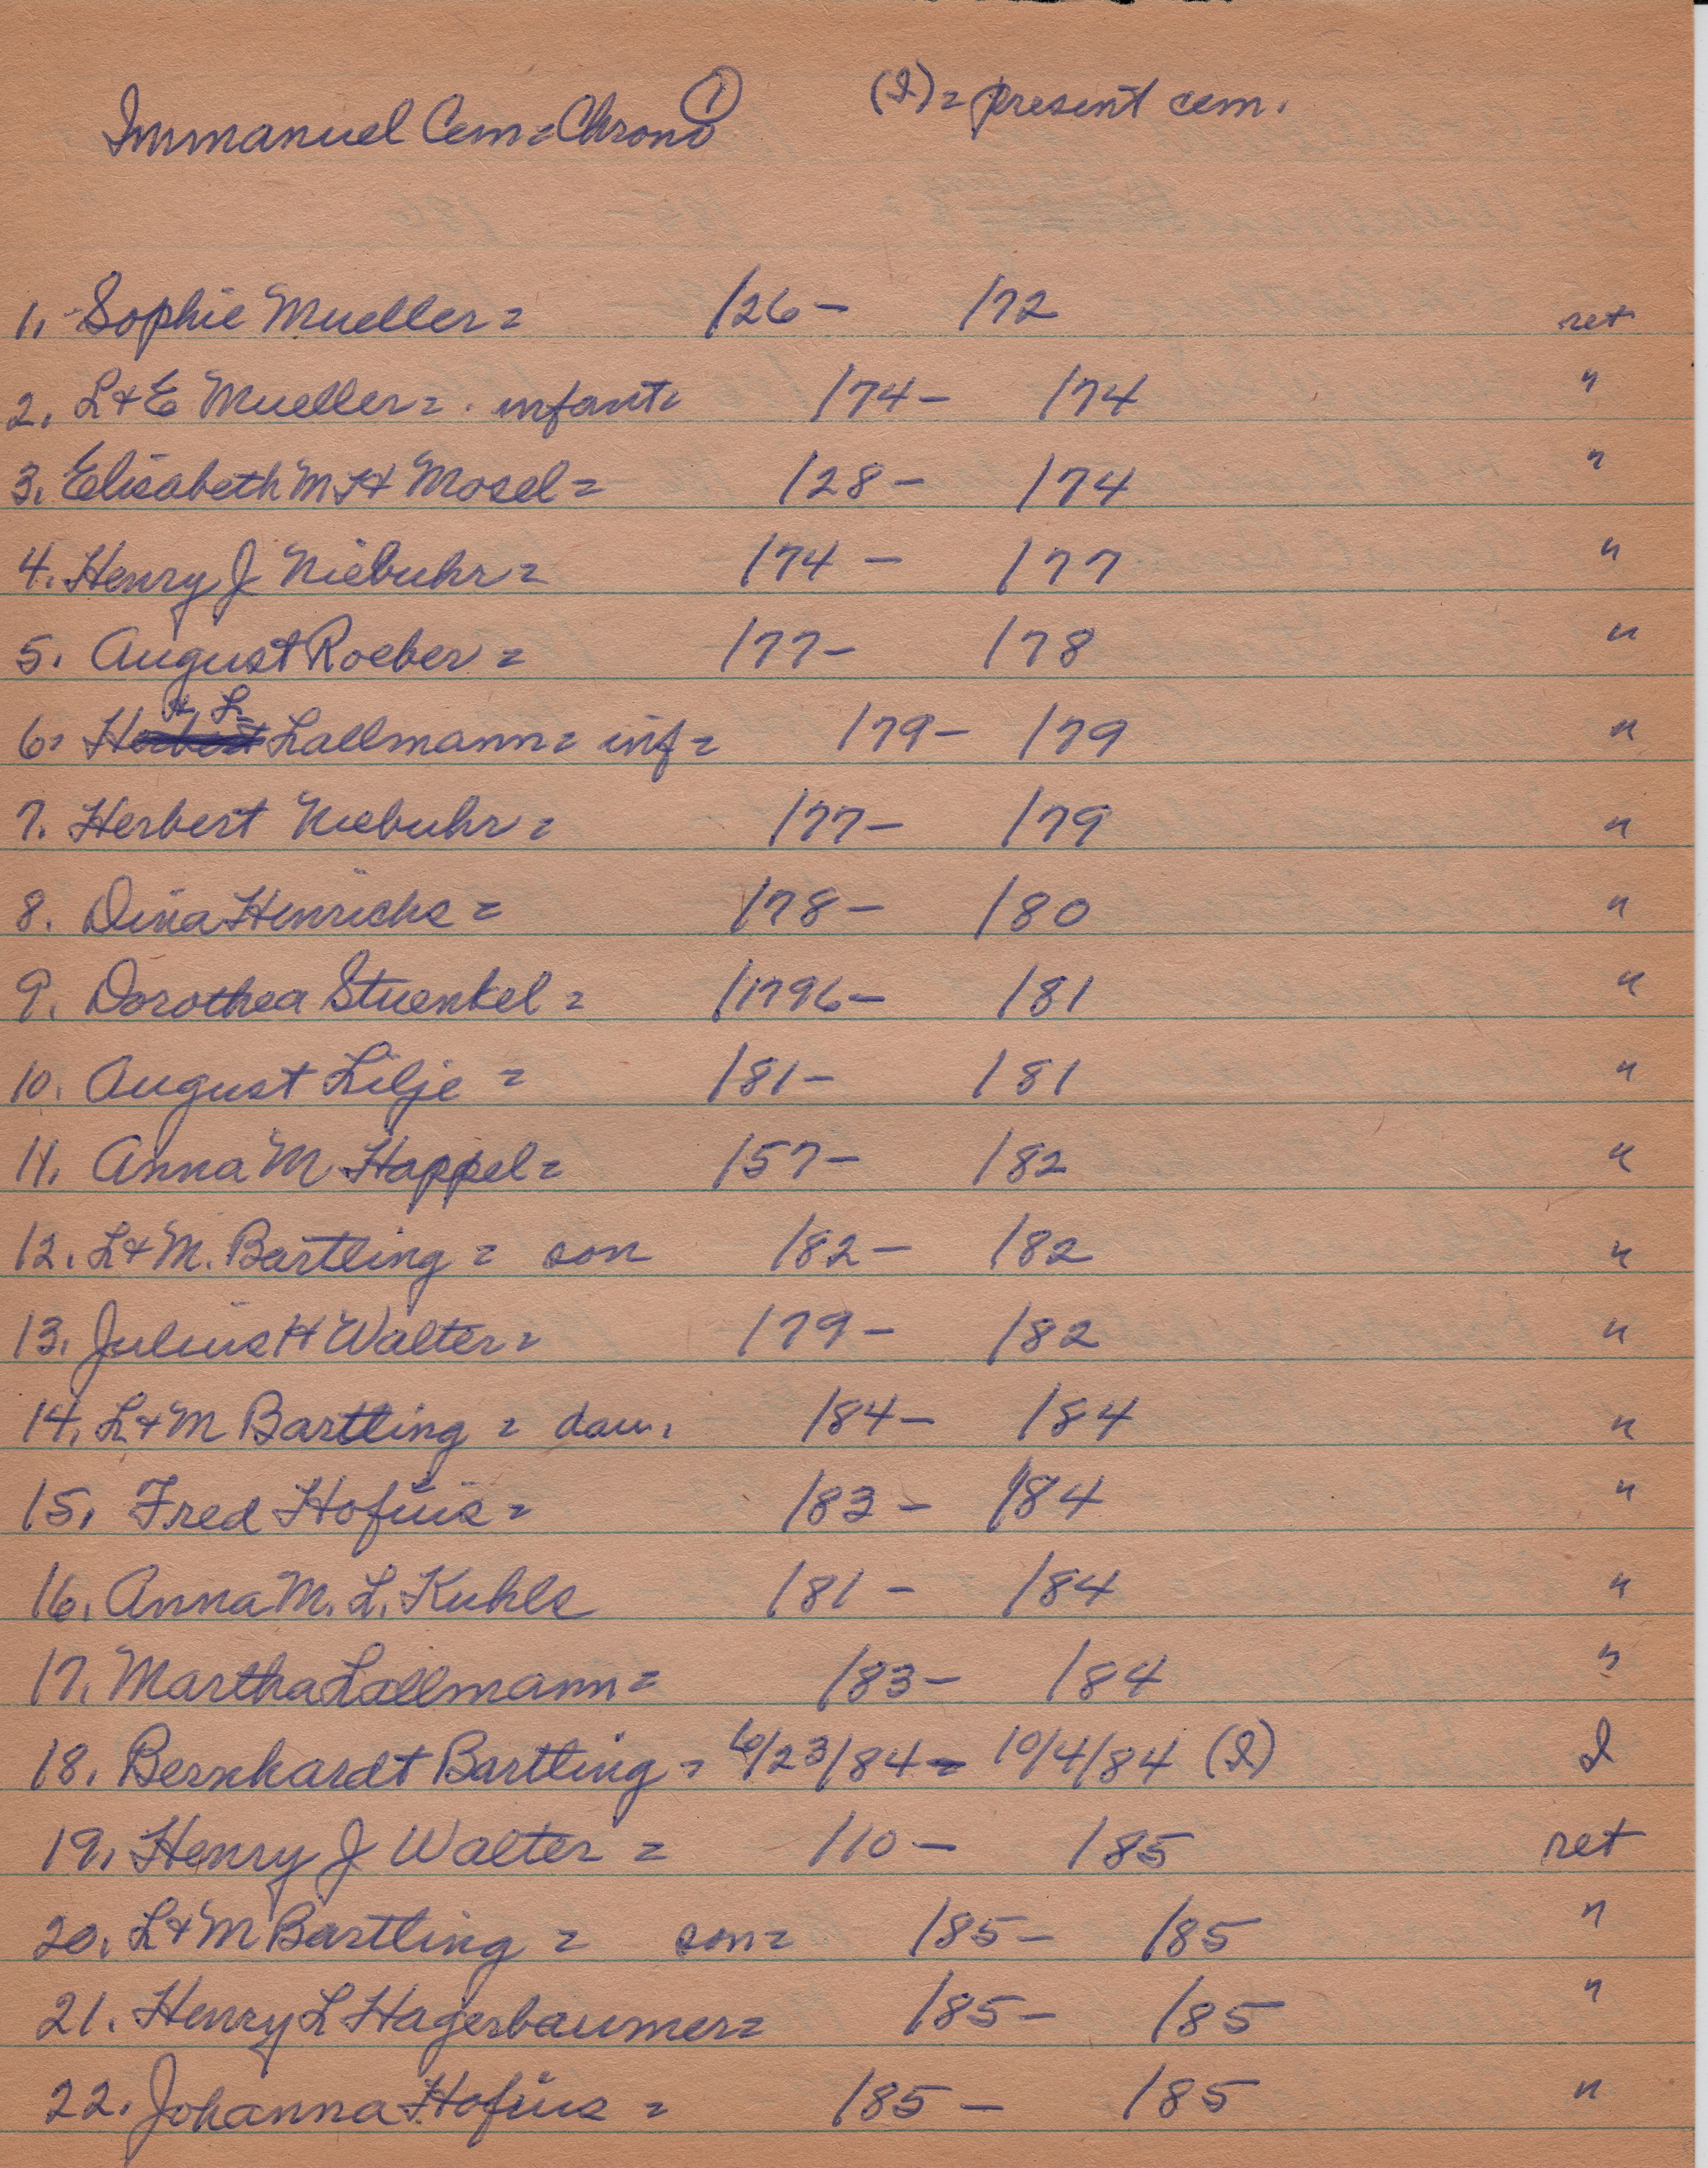 Immanuel Cem = Chrono ① (I) = present cem.
1. Sophie Mueller = /26 - /72 ret
2. L + E Mueller = infant = /74 - /74 "
3. Elisabeth M H Mosel = /28 - /74 "
4. Henry J Niebuhr = /74 - /77 "
5. August Roeber = /77 - /78 "
H L
6. Herbert Lallmann = inf = /79 - /79 "
7. Herbert Niebuhr = /77 - /79 "
8. Dina Hinrichs = /78 - /80 "
9. Dorothea Stuenkel = /1796 - /81 "
10. August Lilje = /81 - /81 "
11. Anna M Happel = /57 - /82 "
12. L + M. Bartling = son /82 - /82 "
13. Julius H Walter = /79 - /82 "
14. L + M Bartling = dau. /84 - /84 "
15. Fred Hofius = /83 - /84 "
16. Anna M. L. Kuhls /81 - /84 "
17. Martha Lallmann = /83 - /84 "
18. Bernhardt Bartling = 6/23/84 - 10/4/84 (I) I
19. Henry J Walter = /10 - /85 ret
20. L + M Bartling = son = /85 - /85 "
21. Henry L Hagerbaumer = /85 - /85 "
22. Johanna Hofius = /85 - /85 "